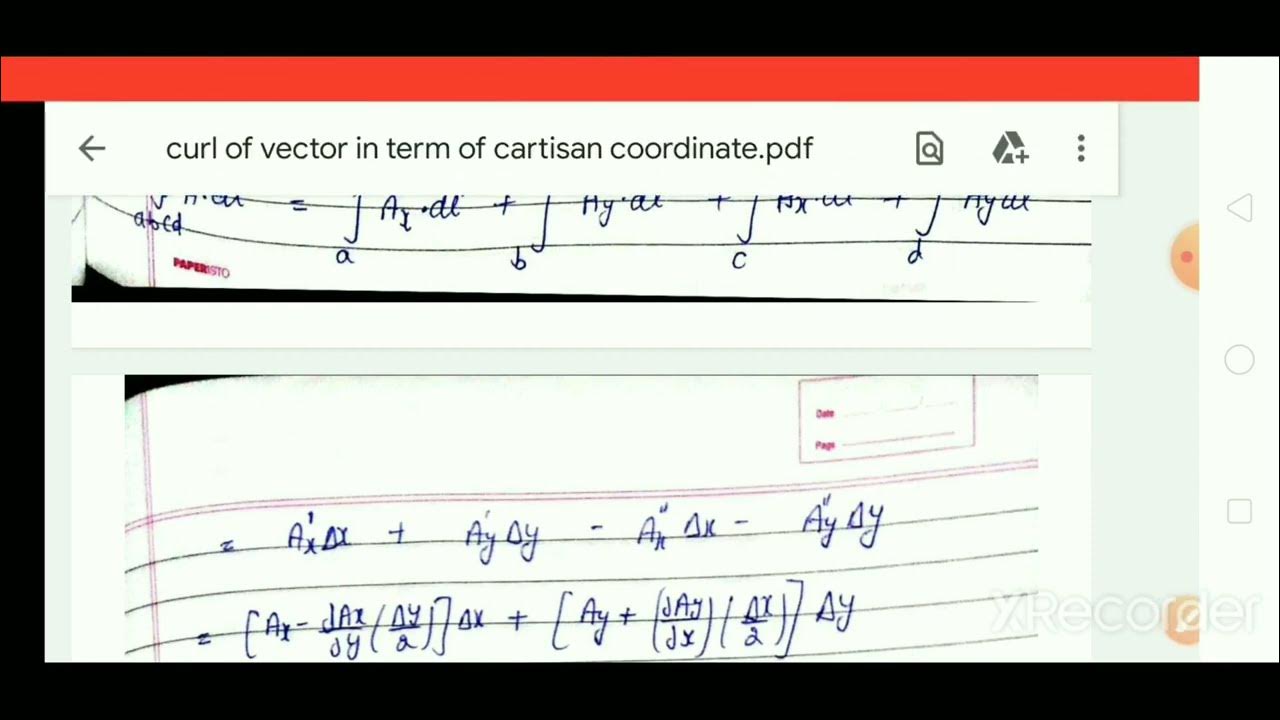 curl of vector in term of cartisan coordinate.pdf
abcd = ∫ Ax·dl + ∫ Ay·dl + ∫ Ax·dl + ∫ Ay dl
a b c d
PAPERISTO
Date
Page
= A'x Δx + A'y Δy - A"x Δx - A"y Δy
= [Ax - ∂Ax/∂y (Δy/2)] Δx + [Ay + (∂Ay/∂x) (Δx/2)] Δy
XRecorder